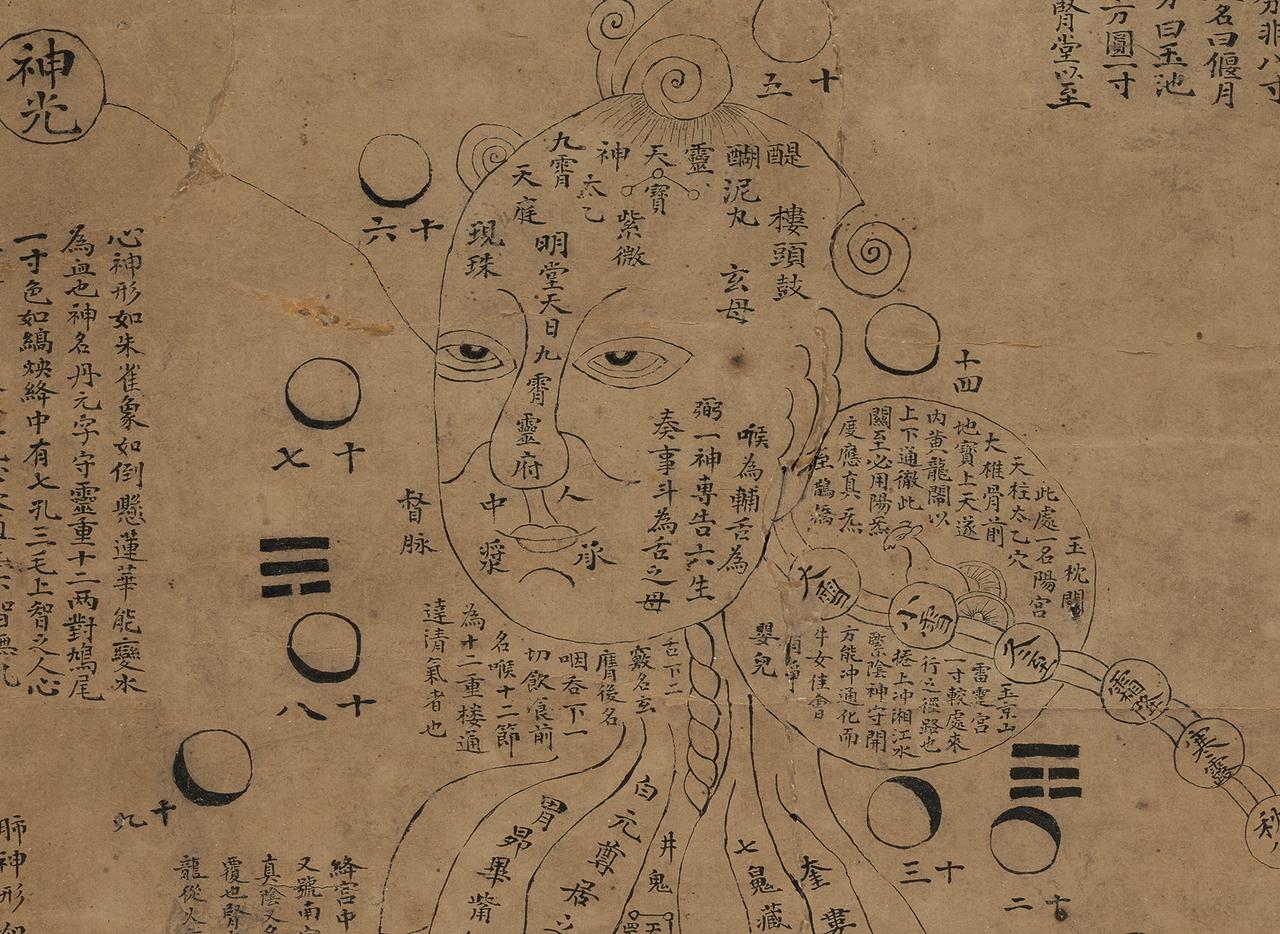 神光
心神形如朱雀象如倒懸蓮華能變水
為血也神名丹元字守靈重十二兩對鳩尾
一寸色如縞焕絳中有七孔三毛上智之人心
肺神形
絳宮中
又號南
真陰又名
覆也腎
龍從火
十五
十六
十七
十八
十九
十四
十三
十二
名曰偃月
曰玉池
方圓一寸
腎堂以至
醍醐
靈
天
神
九霄
天庭
太乙
寶
紫微
泥丸
樓頭鼓
玄母
現珠
明堂天日九霄靈府
喉為輔舌為
弼一神專告六生
奏事斗為舌之母
人
中
承
漿
督脉
玉枕關
此處一名陽宮
天柱太乙穴
大椎骨前
地寶上天遂
內黃龍關以
上下通徹此
關至必用陽炁
度應真炁
至鵲橋
大雪
小雪
冬至
霜降
寒露
秋
玉京山
雷霆宮
一寸較處來
行之徑路也
捲上冲湘江水
繫陰神守開
方能冲通化而
牛女佳會
嬰兒
舌下二
竅名玄
膺後名
咽吞下一
切飲食前
名喉十二節
為十二重楼通
達清氣者也
白元尊居
胃昴畢觜
井鬼
七鬼藏
奎婁